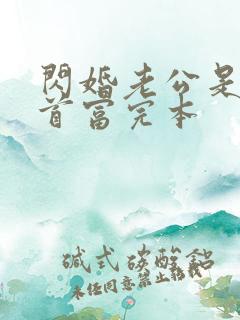 閃婚老公是
首富完本
碱式碳酸鋁
未经同意禁止转载